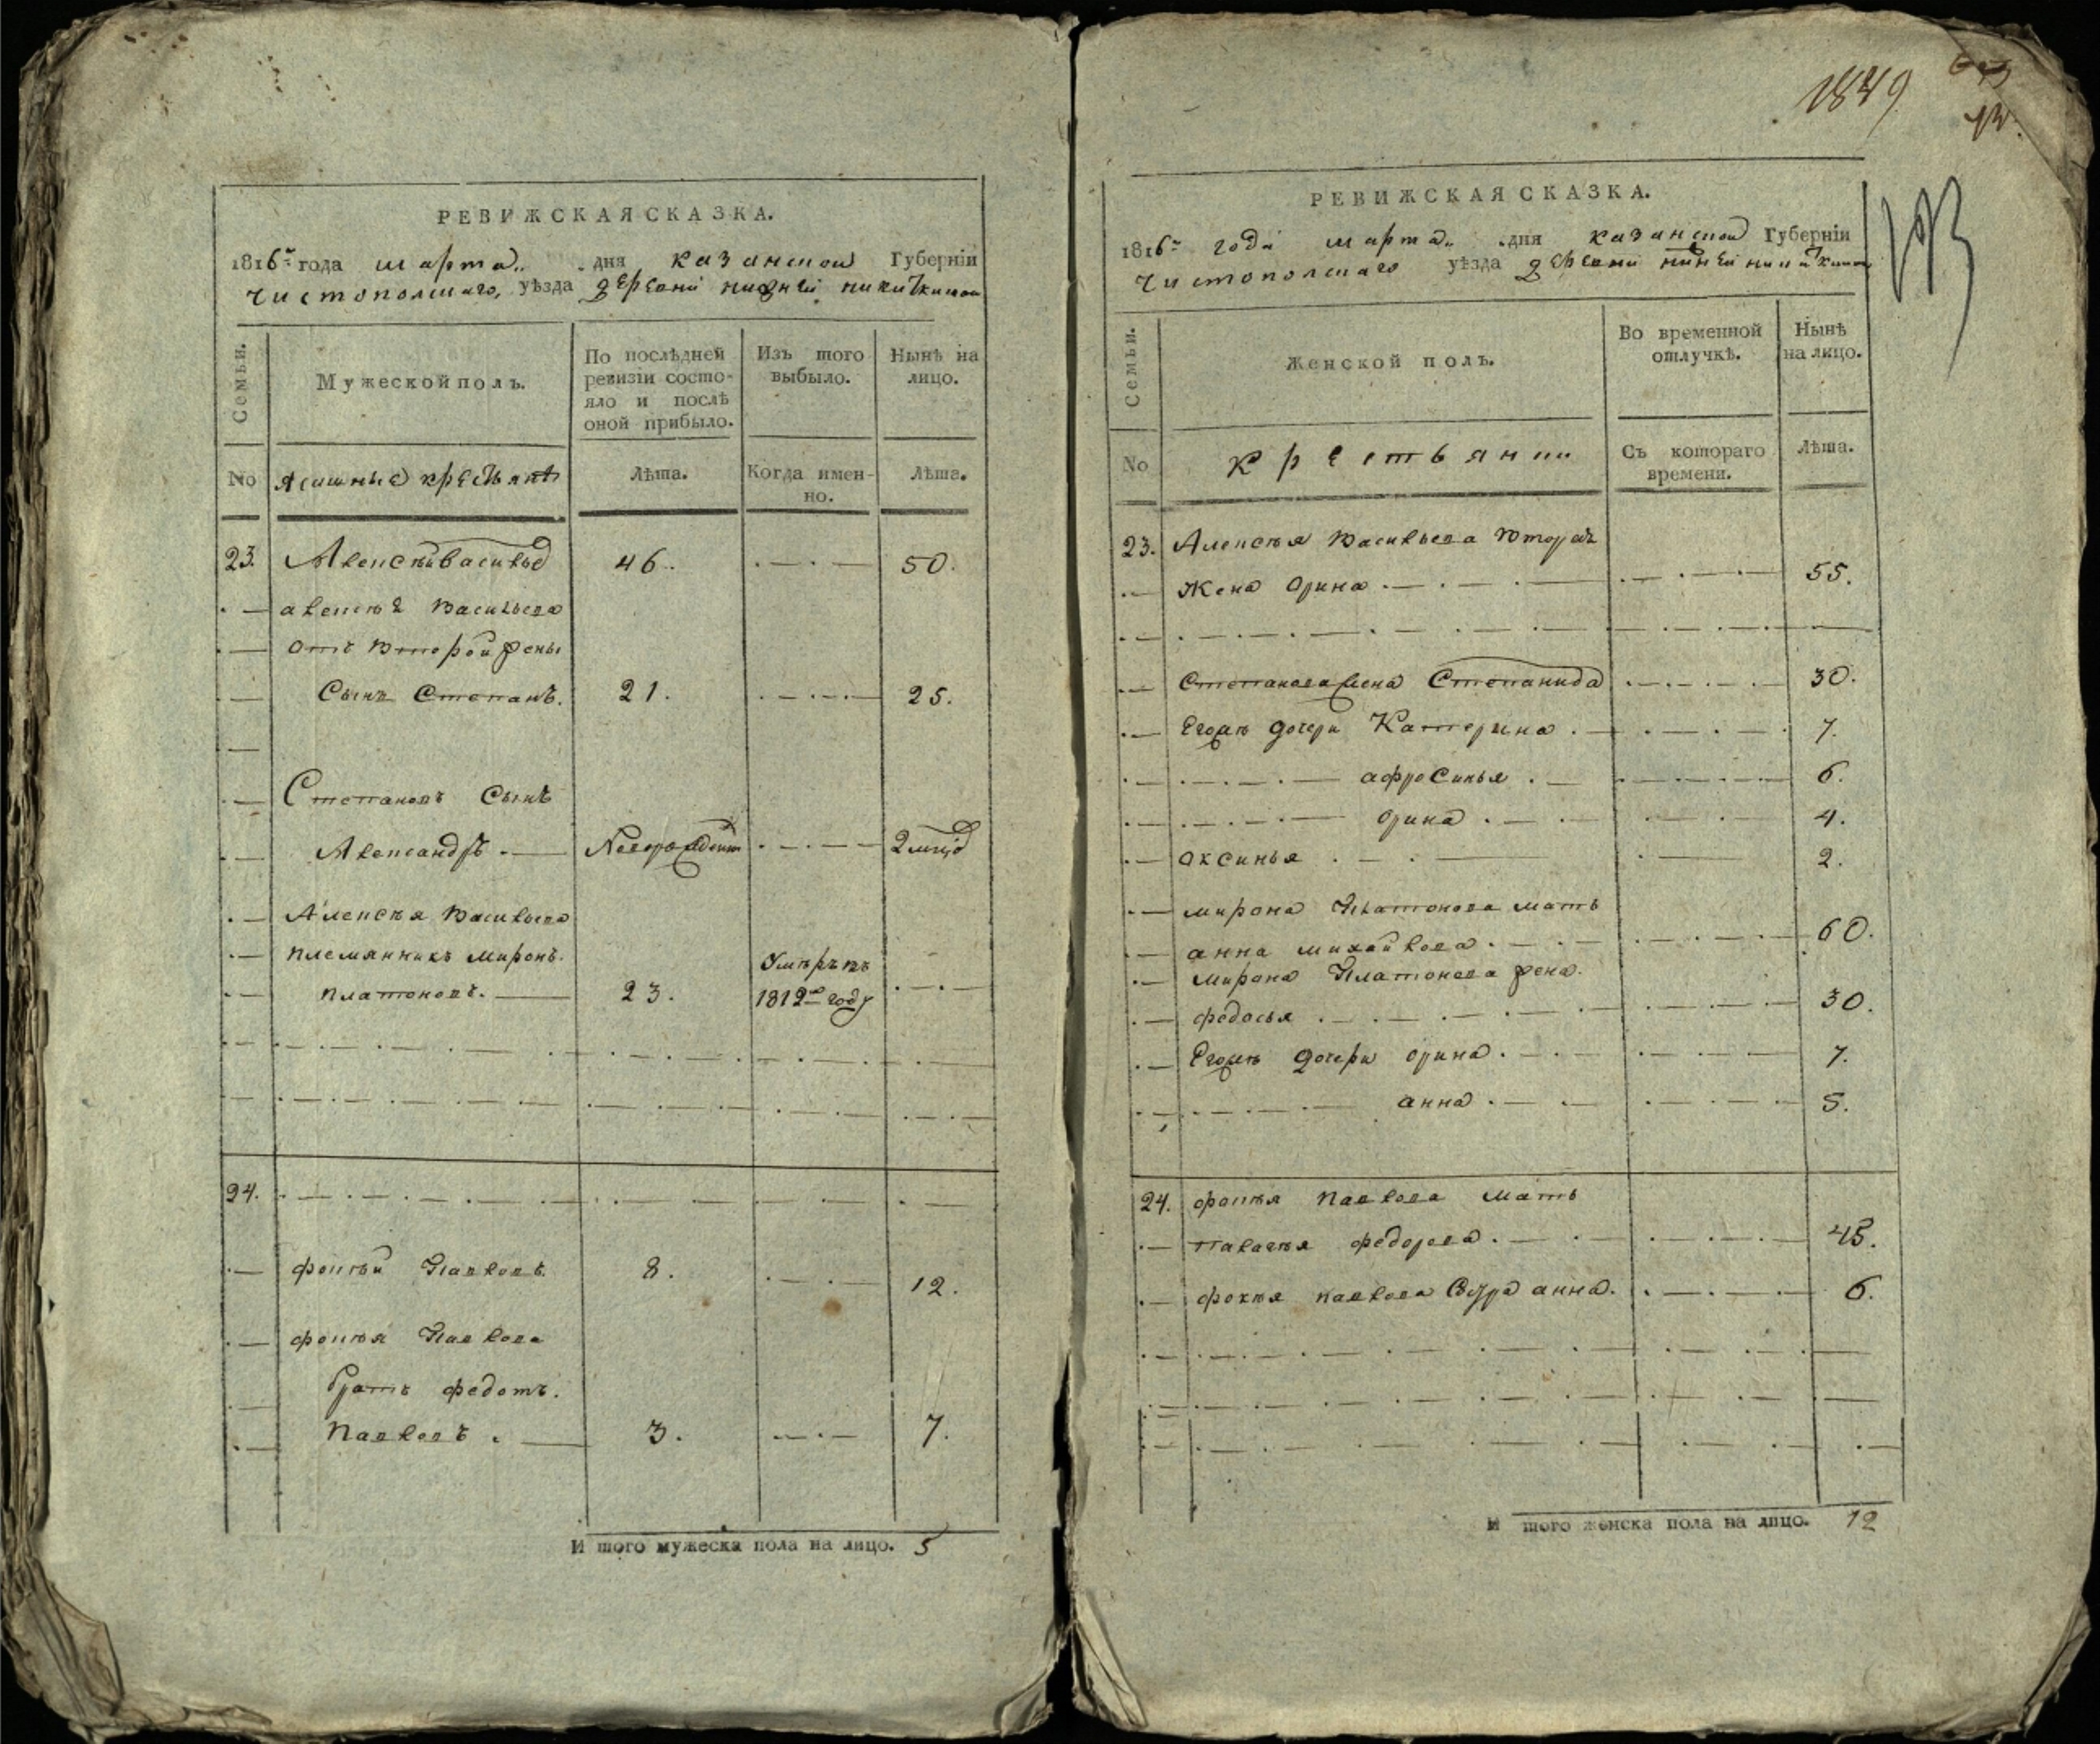 РЕВИЖСКАЯ СКАЗКА.
1816го года марта дня казанской Губерніи
чистопольскаго, уѣзда деревни нижней никиткиной
Семьи.
Мужеской полъ.
По послѣдней ревизіи состояло и послѣ оной прибыло.
Изъ того выбыло.
Нынѣ на лицо.
No
ясашные крестьянѣ
Лѣта.
Когда именно.
Лѣта.
23. Алексѣй Васильев 46. 50.
алексѣя Васильева
отъ второй жены
Сынъ Степанъ. 21. 25.
Степановъ Сынъ
Александръ Новорожденъ 2 мцов
Алексѣя Васильева
племянникъ миронъ. Умѣръ въ
платоновъ. 23. 1812м году
24.
фокѣй Павловъ. 8. 12.
фокѣя Павлова
братъ федотъ.
Павловъ. 3. 7.
И того мужеска пола на лицо. 5
1849
13
РЕВИЖСКАЯ СКАЗКА.
1816го года марта дня казанской Губерніи
чистопольскаго уѣзда деревни нижней никиткиной
Семьи.
Женской полъ.
Во временной отлучкѣ.
Нынѣ на лицо.
No
крестьянки
Съ котораго времени.
Лѣта.
23. Алексѣя Васильева вторая
жена Орина 55.
Степанова жена Степанида 30.
Егожъ дочери Катерина 7.
афросинья 6.
орина 4.
оксинья 2.
мирона Платонова мать
анна михайлова 60.
мирона Платонова жена
федосья 30.
Егожъ дочери орина 7.
анна 5.
24. фокѣя Павлова мать
палагѣя федорова 45.
фокѣя павлова Сестра анна. 6.
И того женска пола на лицо. 12